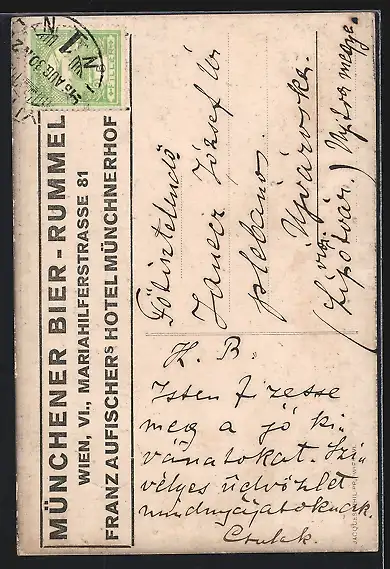 MÜNCHENER BIER-RUMMEL
WIEN, VI., MARIAHILFERSTRASSE 81
FRANZ AUFISCHERS HOTEL MÜNCHNERHOF
Főtisztelendő
Jancer József úr
plebános.
Újvároska.
(via Lipótvár.) Nyitra megye.
H. B.
Isten fizesse
meg a jó ki-
vánatokat. Szi-
vélyes üdvözlet
mindnyájatoknak.
Csulak.